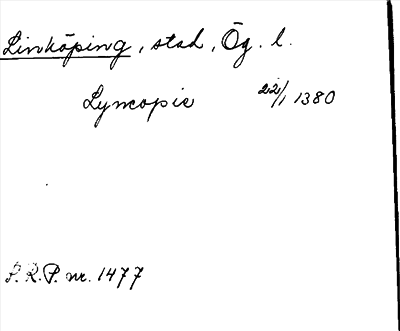 Linköping, stad, Ög. l.
Lyncopie 22/1 1380
P.R.P. nr. 1477